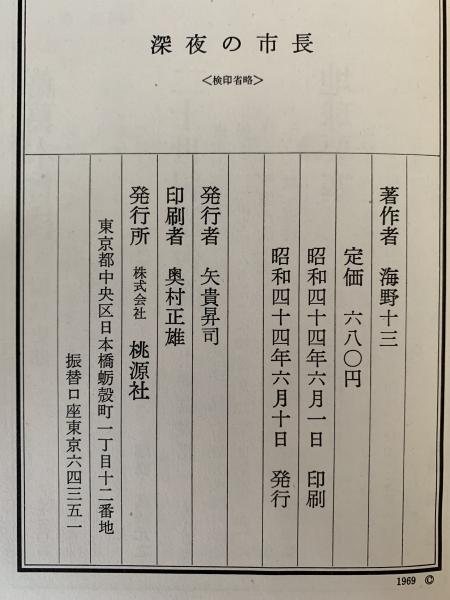 深夜の市長
<検印省略>
著作者 海野十三
定価 六八〇円
昭和四十四年六月一日 印刷
昭和四十四年六月十日 発行
発行者 矢貴昇司
印刷者 奥村正雄
発行所 株式会社 桃源社
東京都中央区日本橋蛎殻町一丁目十二番地
振替口座東京六四三五一
1969 ©